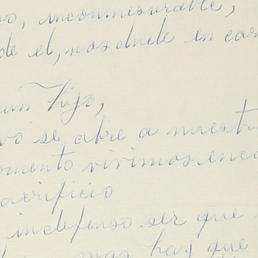 so, inconmesurable,
de el, nos duele in car
un hijo,
vo se abre a nuestr
omento vivimos enca
acrificio
indefenso ser que
mas hay que